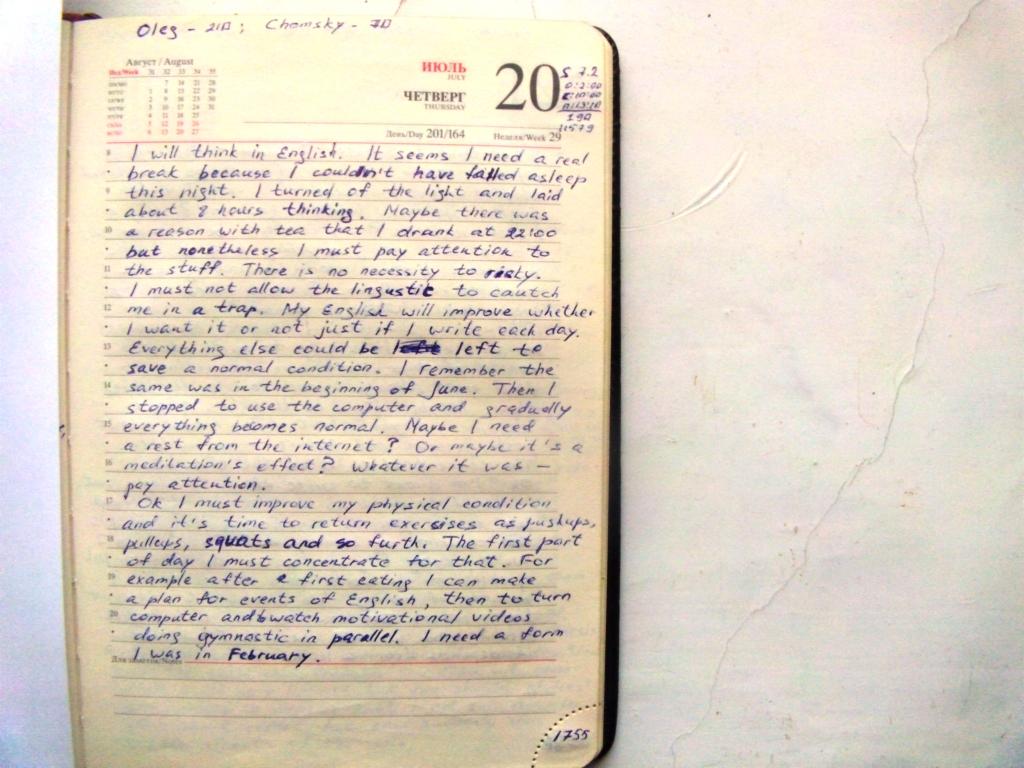 Oleg - 21П; Chomsky - 7П
Август / August
Нед/Week 31 32 33 34 35
7 14 21 28
1 8 15 22 29
2 9 16 23 30
3 10 17 24 31
4 11 18 25
5 12 19 26
6 13 20 27
ИЮЛЬ
JULY
ЧЕТВЕРГ
THURSDAY
20
S 7.2
0:2:00
19П
11579
День/Day 201/164
Неделя/Week 29
8 I will think in English. It seems I need a real
break because I couldn't have falled asleep
9 this night. I turned of the light and laid
about 8 hours thinking. Maybe there was
10 a reason with tea that I drank at 22:00
but nonetheless I must pay attention to
11 the stuff. There is no necessity to risky.
I must not allow the lingustic to cautch
12 me in a trap. My English will improve whether
I want it or not just if I write each day.
13 Everything else could be left to
save a normal condition. I remember the
14 same was in the beginning of June. Then I
stopped to use the computer and gradually
15 everything becomes normal. Maybe I need
a rest from the internet? Or maybe it's a
16 meditation's effect? Whatever it was –
pay attention.
17 Ok I must improve my physical condition
and it's time to return exercises as pushups,
18 pullups, squats and so furth. The first part
of day I must concentrate for that. For
19 example after a first eating I can make
a plan for events of English, then to turn
20 computer and watch motivational videos
doing gymnostic in parallel. I need a form
I was in February.
Для заметок/Notes
1755